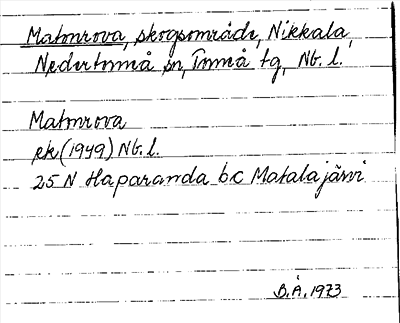 Matonrova, skogsområde, Nikkala,
Nedertorneå sn, Torneå tg, Nb. l.
Matonrova
ek (1949) Nb. l.
25 N Haparanda b c Matalajärvi
B.Å. 1973